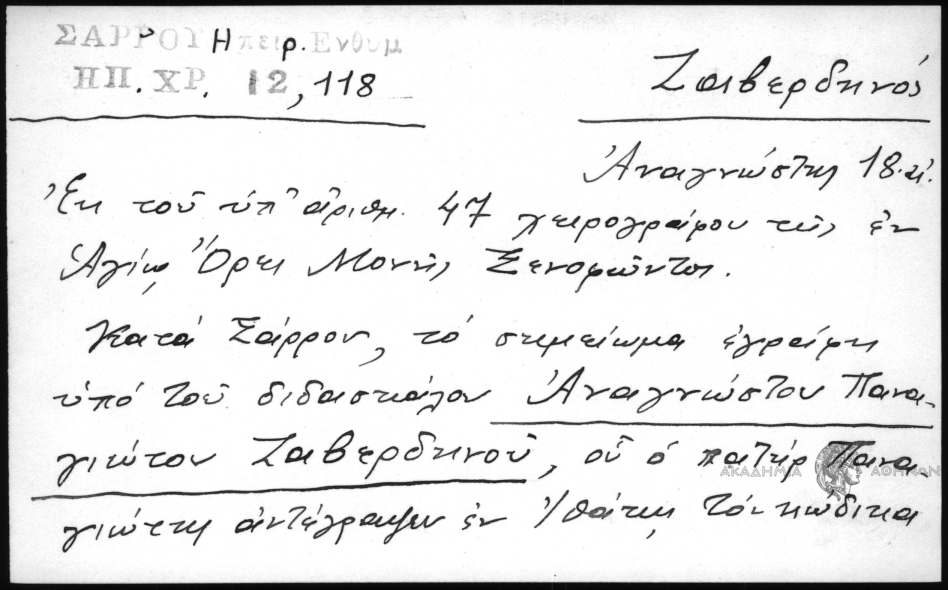 ΣΑΡΡΟΥ Ηπειρ. Ενθυμ
ΗΠ. ΧΡ. 12, 118
Ζαβερδηνός
Ἀναγνώστης 18. αἰ.
Ἐκ τοῦ ὑπ' ἀριθμ. 47 χειρογράφου τῆς ἐν
Ἁγίῳ Ὄρει Μονῆς Ξενοφῶντος.
Κατά Σάρρον, τό σημείωμα ἐγράφη
ὑπό τοῦ διδασκάλου Ἀναγνώστου Πανα-
γιώτου Ζαβερδηνοῦ, οὗ ὁ πατήρ Πανα
γιώτης ἀντέγραψεν ἐν Ἰθάκῃ τόν κώδικα
ΑΚΑΔΗΜΙΑ ΑΘΗΝΩΝ